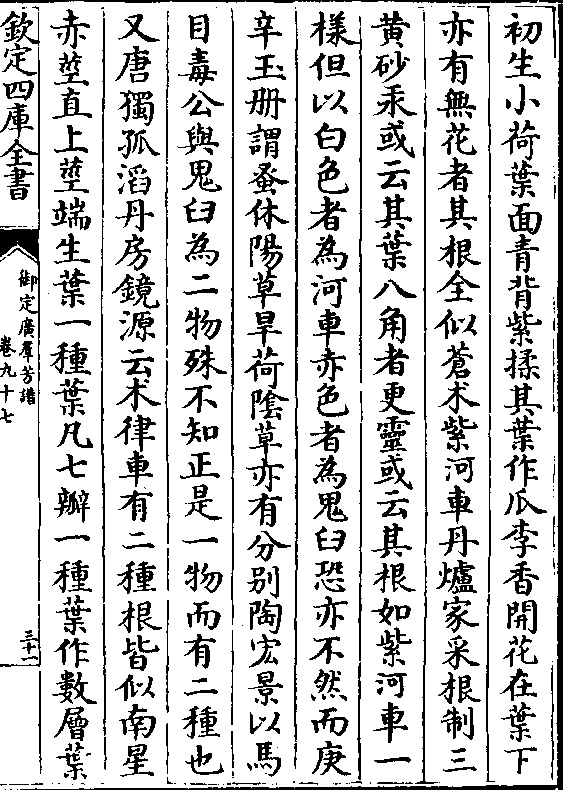 初生小荷葉面青背紫揉其葉作瓜李香開花在葉下
亦有無花者其根全似蒼术紫河車丹爐家采根制三
黄砂汞或云其葉八角者更靈或云其根如紫河車一
樣但以白色者為河車赤色者為鬼臼恐亦不然而庚
辛玉册謂蚤休陽草旱荷陰草亦有分别陶宏景以馬
目毒公與鬼臼為二物殊不知正是一物而有二種也
又唐獨孤滔丹房鏡源云术律車有二種根皆似南星
赤莖直上莖端生葉一種葉凡七瓣一種葉作數層葉
欽定四庫全書
御定廣羣芳譜
卷九十七
三十一